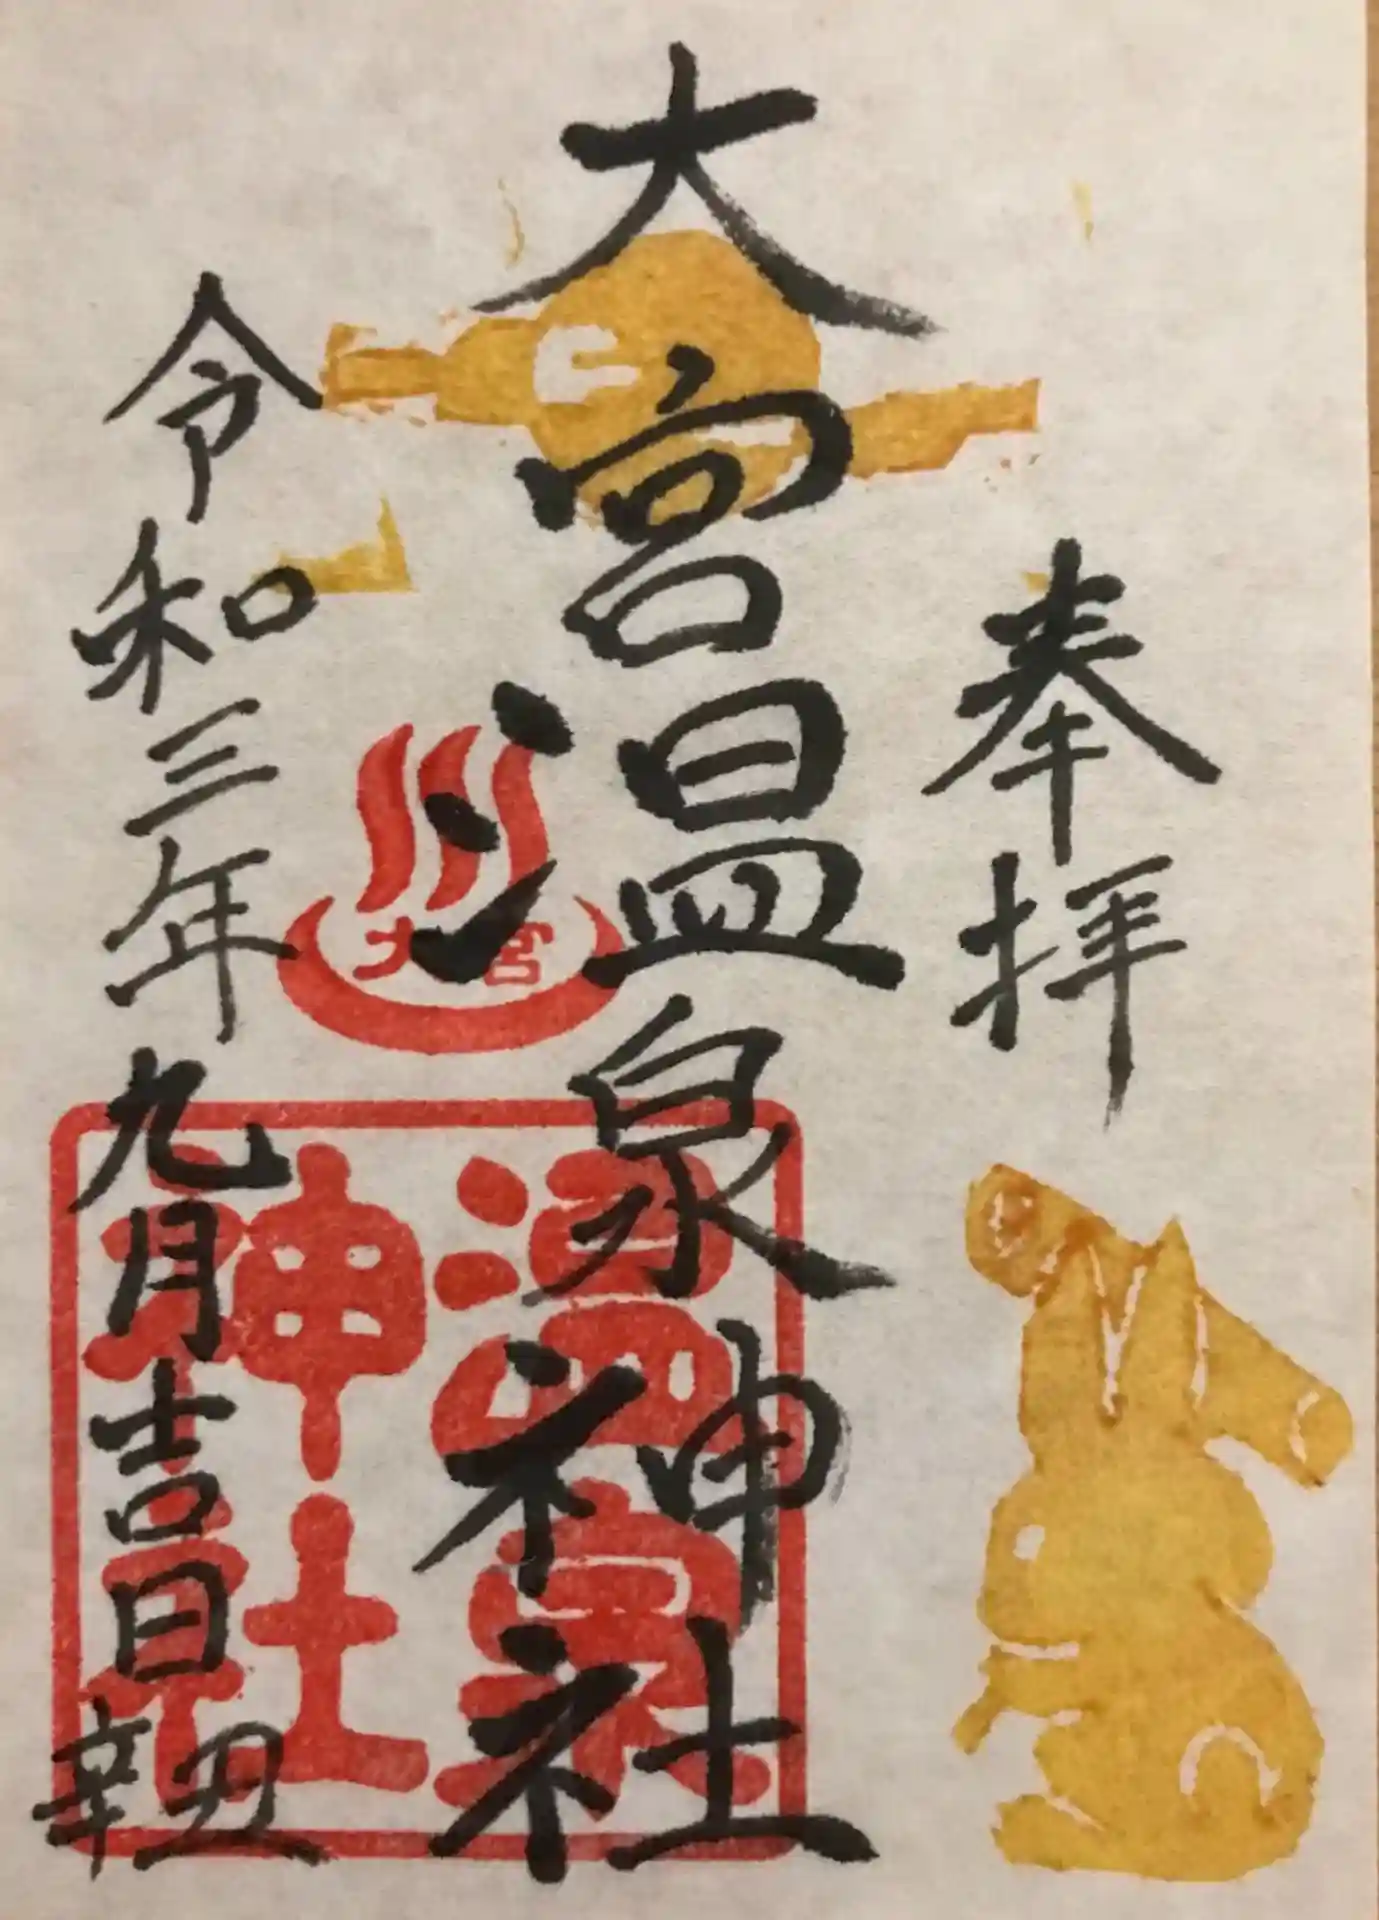 奉拝
大宮温泉神社
大宮
温泉
神社
令和三年九月吉日
辛丑